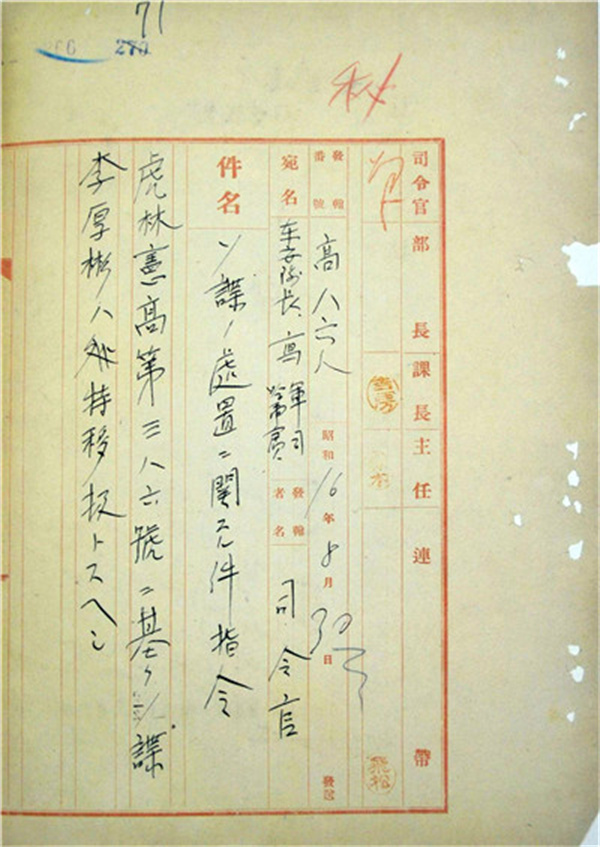 71
270
秘
司令官 部長 課長 主任 連帶
發翰番號 高八六八
昭和16年8月30日 發送
宛名 東安隊長、
發翰者名 司令官
件名 ソ諜ノ處置ニ關スル件指令
虎林憲高第三八六號ニ基クソ諜
李厚彬ハ特移扱トスヘシ